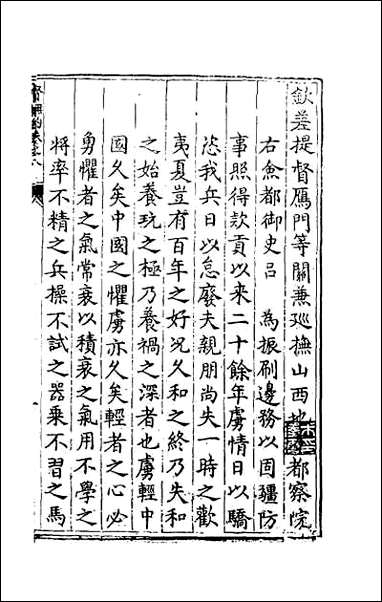 欽差提督雁門等關兼巡撫山西地方都察院
右僉都御史呂 為振刷邊務以固疆防
事照得欵貢以來二十餘年虜情日以驕
恣我兵日以怠廢夫親朋尚失一時之歡
夷夏豈有百年之好况久和之終乃失和
之始養玩之極乃養禍之深者也虜輕中
國久矣中國之懼虜亦久矣輕者之心必
勇懼者之氣常衰以積衰之氣用不學之
將率不精之兵操不試之器乗不習之馬